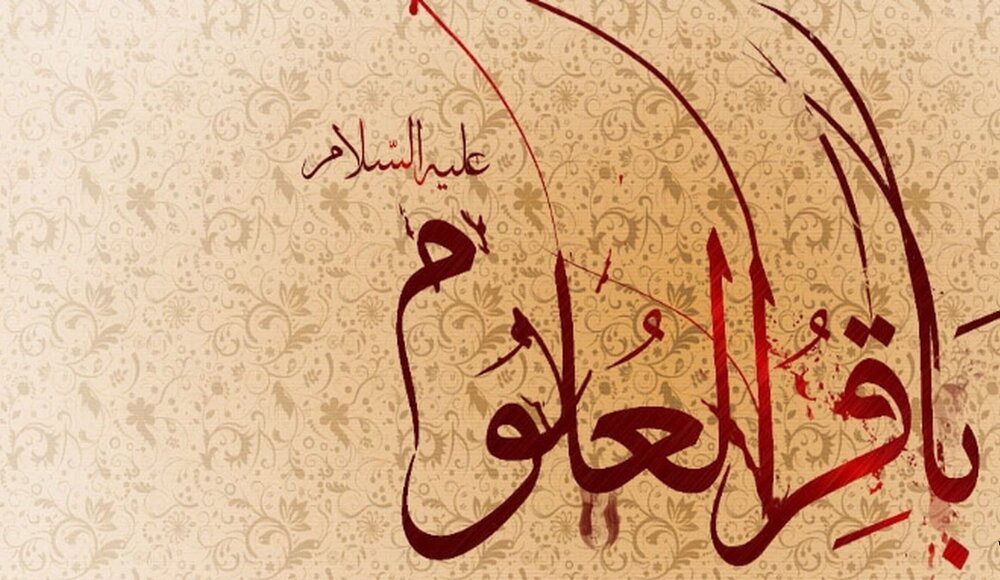 باقِرُ العُلُوم
علیه السّلام